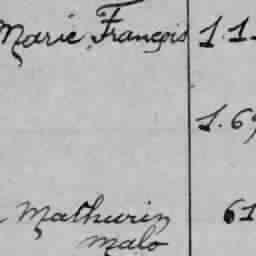 Marie François 1.1
1.6
Mathurin 61
Malo